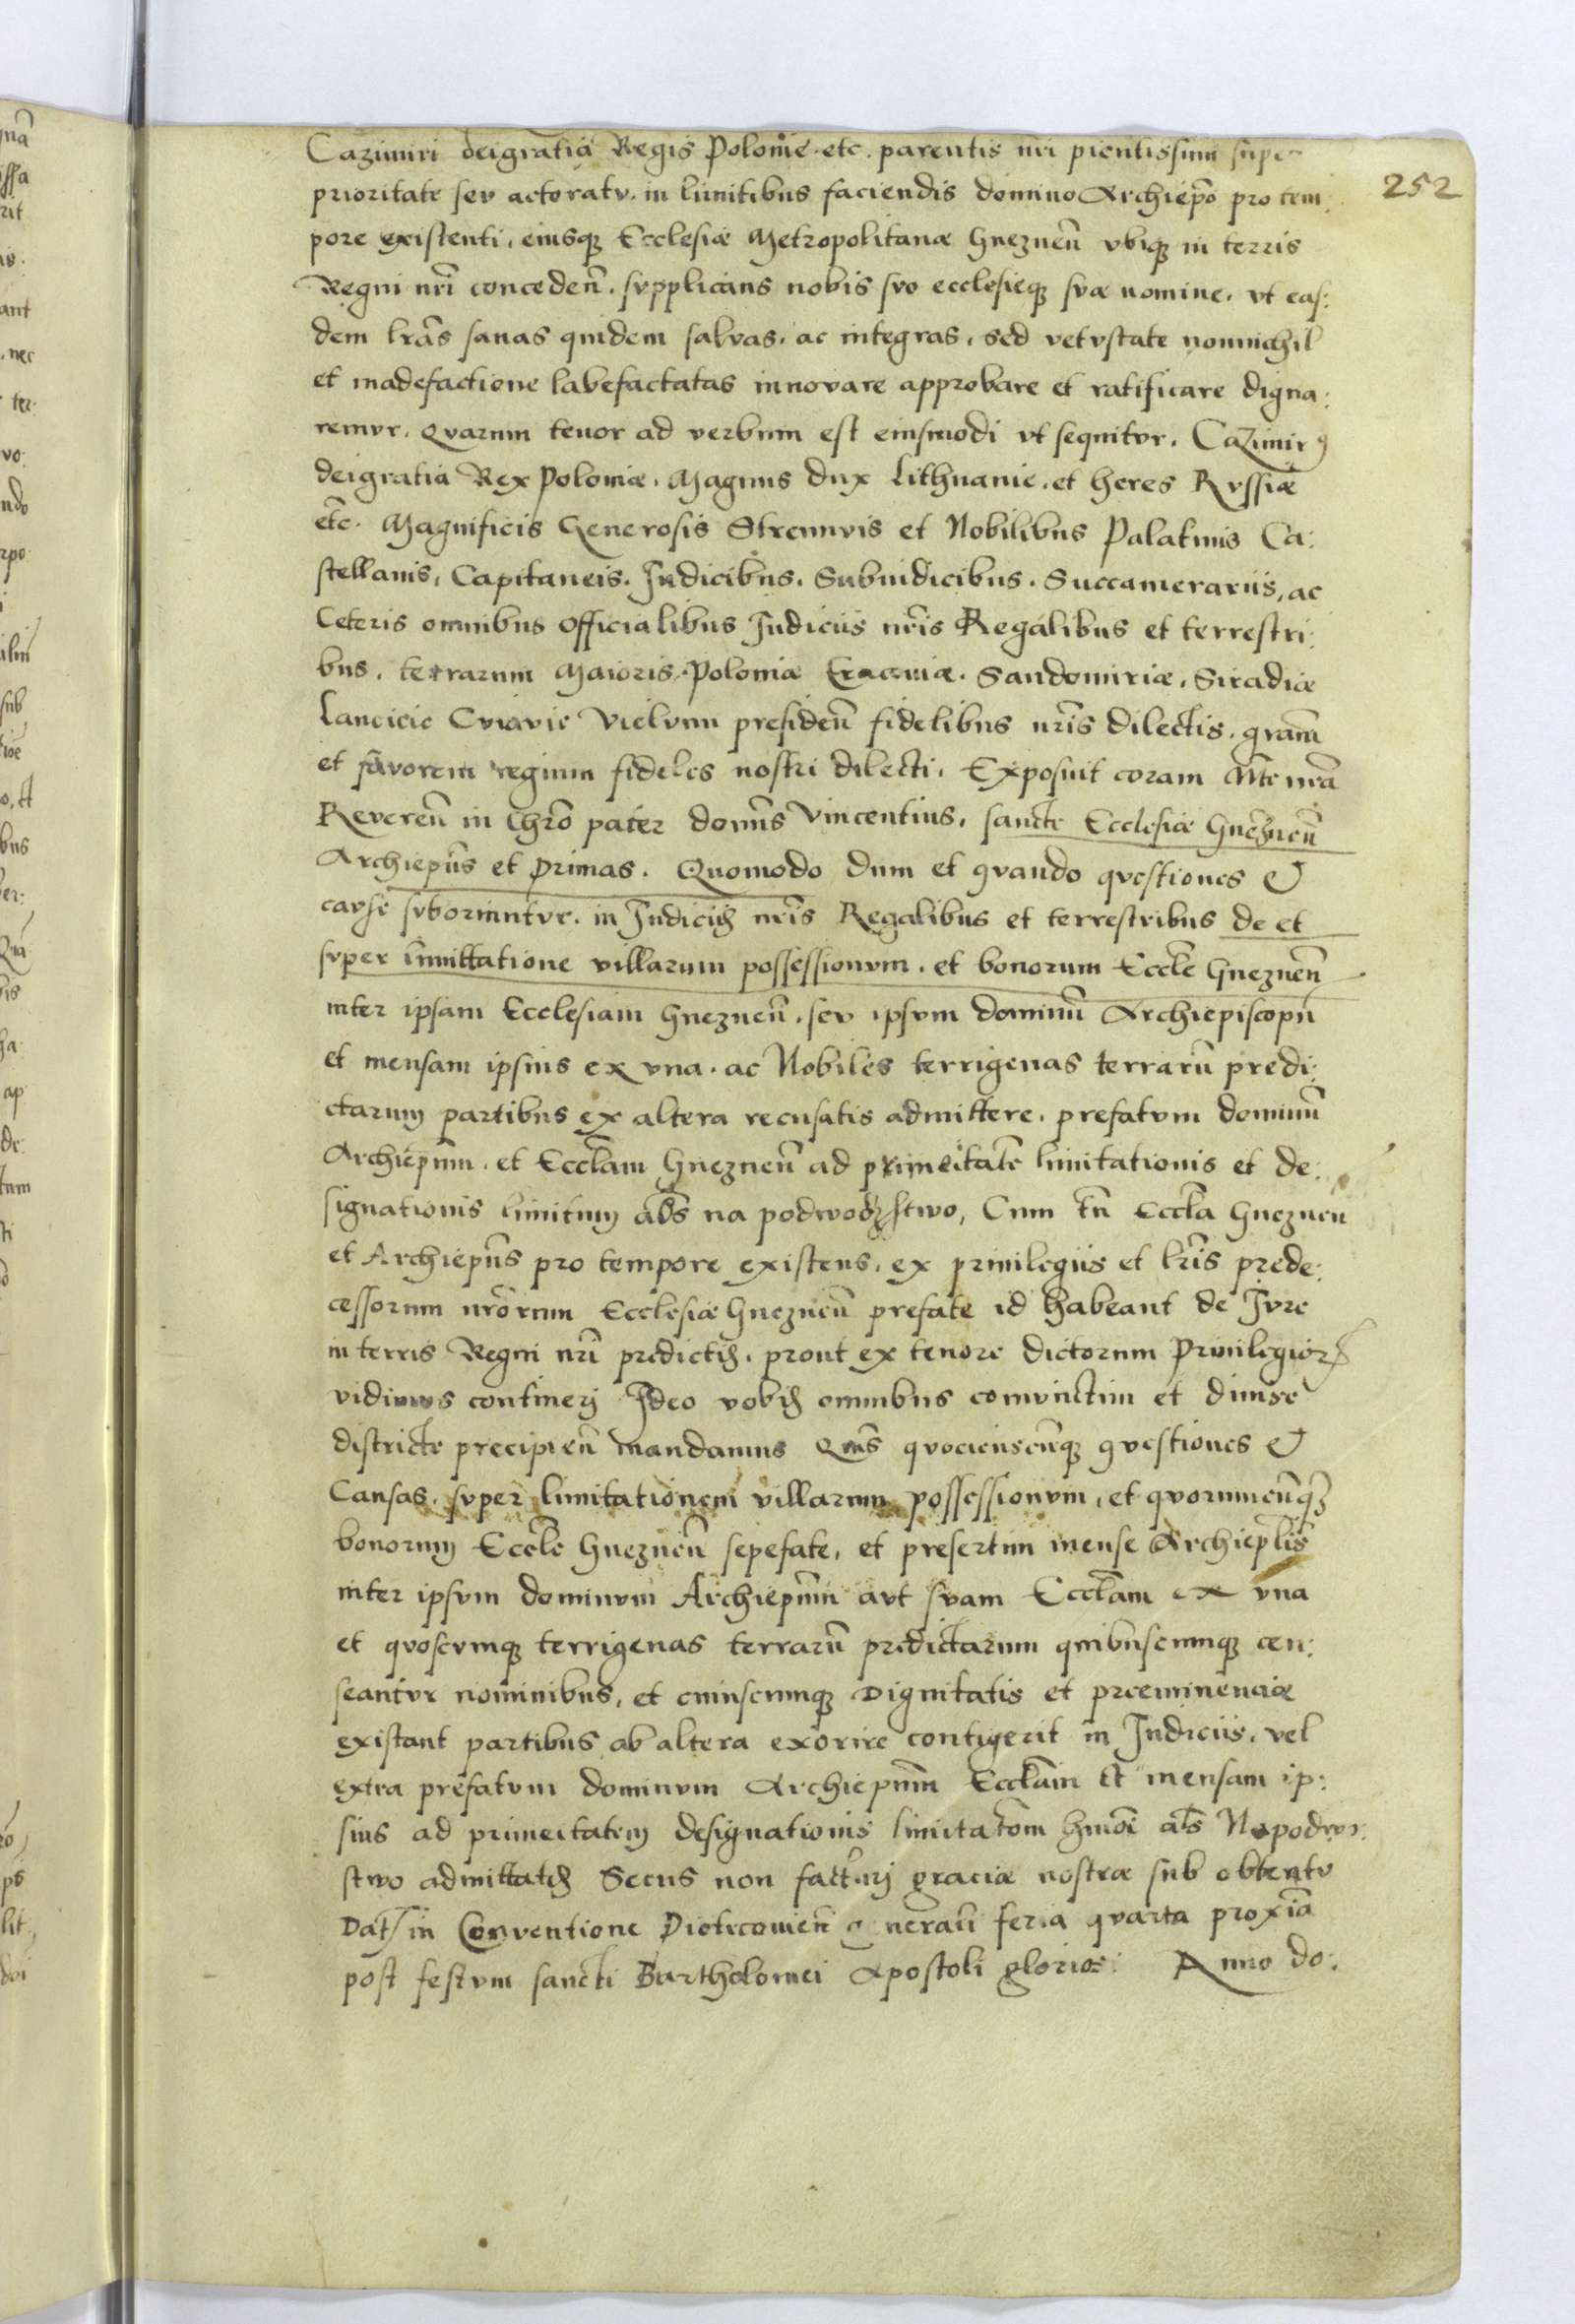 Cazimiri deigratia Regis Polonie etc. parentis nri pientissimi super
252
prioritate seu actoratv. in limitibus faciendis domino Archiepō pro tem:
pore existenti, eiusqz Ecclesiæ Metropolitanæ Gneznen̄ vbiqz in terris
Regni nr̄i conceden̄. svpplicans nobis svo ecclesieqz svæ nomine. vt eas:
dem lrās sanas quidem salvas. ac integras. sed vetvstate nonnichil
et madefactione labefactatas innovare approbare et ratificare digna:
remvr. Qvarum tenor ad verbum est eiusmodi vt sequitvr. Cazimirꝰ
deigratia Rex Poloniæ. Magnus dux Lithuanie. et heres Rvssiæ
etc̄. Magnificis Generosis Strennvis et Nobilibus Palatinis Ca:
stellanis, Capitaneis. Iudicibus. Subiudicibus. Succamerariis, ac
Ceteris omnibus Officialibus Iudiciis nr̄is Regalibus et terrestri:
bus. terrarum Maioris Poloniæ Cracoviæ. Sandomiriæ. Siradiæ
Lancicie Cviavie Vielvnn presiden̄ fidelibus nr̄is dilectis. gram̄
et favorem regium fideles nostri dilecti. Exposuit coram Mte nrā
Reveren̄ in Chrō pater domn̄s Vincentius. sancte Ecclesiæ Gneznen̄
Archiepūs et Primas. Quomodo dum et qvando qvestiones &
cavse svboriuntvr. in Iudiciis nr̄is Regalibus et terrestribus de et
svper limittatione villarum possessionvm. et bonorum Eccle Gneznen̄
inter ipsam Ecclesiam Gneznen̄. sev ipsvm dominū Archiepiscopū
et mensam ipsius ex vna. ac Nobiles terrigenas terrarū predi:
ctarum partibus ex altera recusatis admittere. prefatvm dominū
Archiepūm. et Ecclam Gneznen̄ ad primeitate limitationis et de:
signationis limitum als̄ na podwodzstwo, Cum tn̄ Eccla Gneznen
et Archiepūs pro tempore existens. ex priuilegiis et lr̄is prede:
cessorum nrōrum Ecclesiæ Gneznen̄ prefate id habeant de Ivre
in terris Regni nr̄i predictis. prout ex tenore dictorum Priuilegiorꝝ
vidimus contineri Ideo vobis omnibus comvnctim et diuise
districte precipien̄ mandamus Qm̄s qvocienscūqz qvestiones &
Causas. svper limitationem villarum possessionvm, et qvorumcūqz
bonorum Eccle Gneznen̄ sepefate, et presertim mense Archieplis̄
inter ipsvm dominvm Archiepūm avt svam Ecclam ex vna
et qvoscvmqz terrigenas terrarū predictarum quibuscumqz cen:
seantvr nominibus, et cuiuscumqz Dignitatis et preeminenciæ
existant partibus ab altera exorire contigerit in Iudiciis. vel
extra prefatvm dominvm Archiepūm Ecclam et mensam ip:
sius ad primeitatem designationis limitatōm hmōi als̄ Napodwo:
stwo admittatis Secus non factvri graciæ nostræ sub obtentv
Dat̄ in Conventione Piotrcovien̄ generali feria qvarta proxīa
post festvm sancti Bartholomei Apostoli glorios: Anno do: